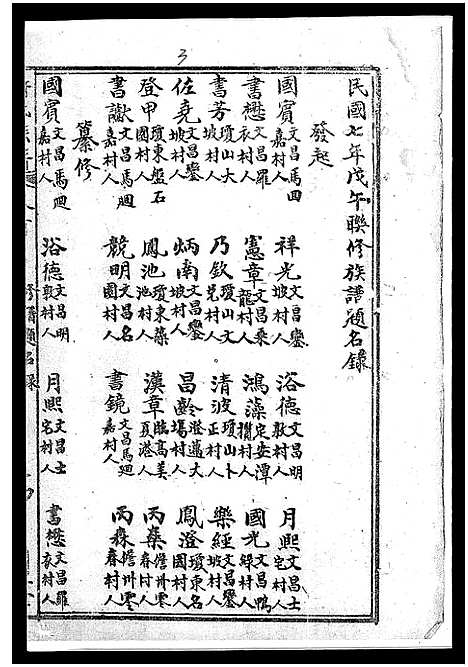 3
民國七年戊午聯修族譜題名錄
發起
國賓文昌馬囬嘉村人 祥光文昌鑾坡村人 浴德文昌明敦村人 月熙文昌士宅村人
書懋文昌羅衣村人 憲章文昌粟龍村人 鴻藻定安潭欖村人 國光文昌鴨村人
書芳瓊山大坡村人 乃欽瓊山文村人 清波瓊山卜正村人 樂經文昌鑾坡村人
佐堯文昌鑾坡村人 炳南文昌鑾坡村人 昌齡澄邁大塲村人 鳳澄瓊東名園村人
登甲瓊東盤石園村人 鳳池瓊東藥池村人 漢章臨高美夏港人 丙燊儋州零春村人
書猷文昌馬廻嘉村人 競明文昌名園村人 書鏡文昌馬廻嘉村人 丙森儋州零春村人
纂修
國賓文昌馬廻嘉村人 浴德文昌明敦村人 月熙文昌士宅村人 書懋文昌羅衣村人
修譜題名錄